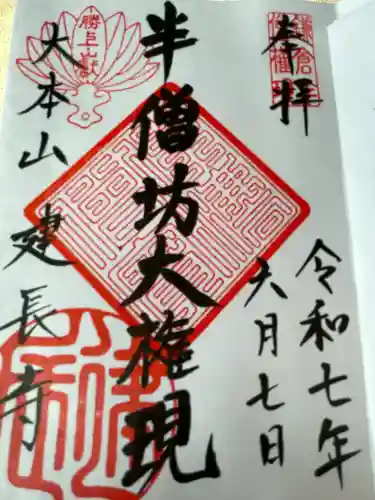 奉拝
令和七年
六月七日
半僧坊大権現
勝上山
大本山 建長寺